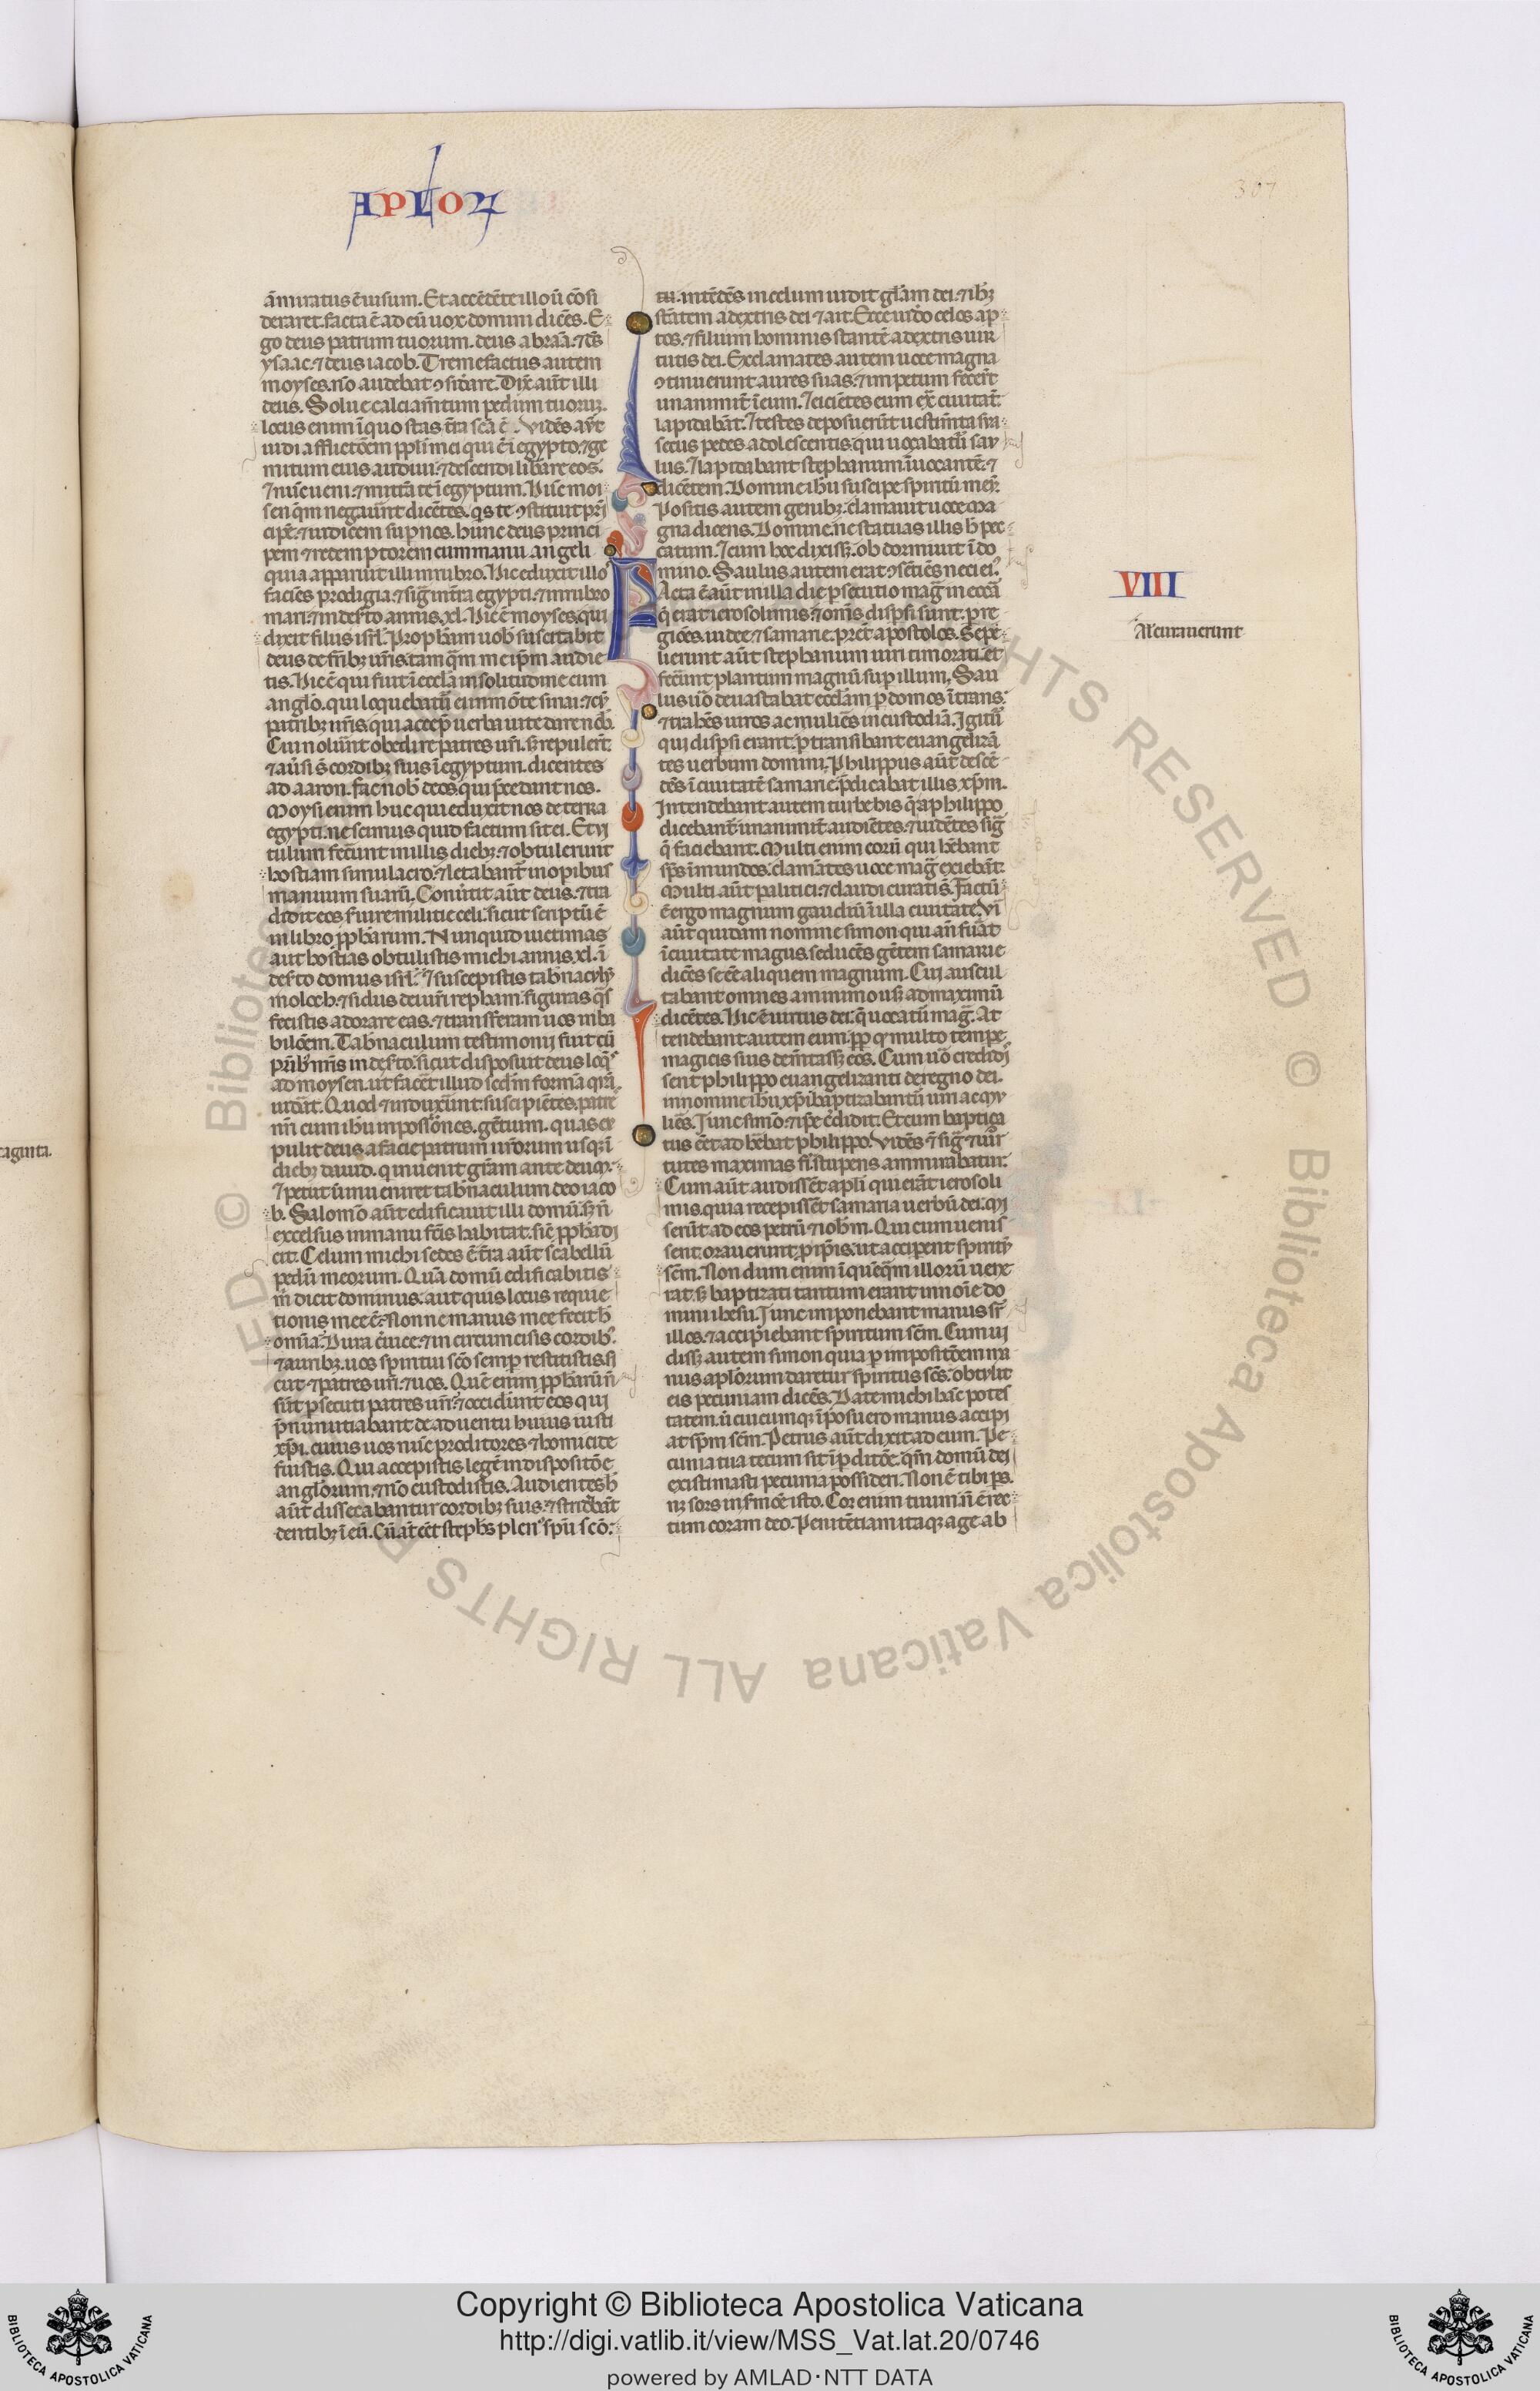 APLOꝜ
307
ãmiratus ẽ uisum. Et accedẽte illo ũ cõsi
deraret. facta ẽ ad eũ uox domini dicẽs. E
go deus patrum tuorum. deus abraã. ⁊ dš
ysaac. ⁊ deus iacob. Tremefactus autem
moyses. nõ audebat ꝯsid̾are. Dix̾ aũt illi
deus. Solue calciam̃tum pedum tuoruꝫ.
locus enim ĩ quo stas t̃ra scã ẽ. Vidẽs
uidi afflictõem ppl̃i mei qui ẽ ĩ egypto. ⁊ ge
mitum eius audiui. ⁊ descendi lib̾are eos.
⁊ nũc ueni. ⁊ mittã te ĩ egyptum. Hũc moi
sen qm̃ negauer̃t dicẽtes. qs te ꝯstituit pri̾
cipẽ. ⁊ iudicem sup nos. hũnc deus princi
pem ⁊ redemptorem cum manu angeli
qui apparuit illi in rubro. Hic eduxit illoˢ
faciẽs prodigia. ⁊ sig̃ in t̃ra egypti. ⁊ in rubro
mari. ⁊ in des̾to annis. xl. Hic ẽ moyses. qui
dixit filiis isrl̃. Propħam uob̾ suscitabit
deus de fr̃ibꝫ ur̃is. tam qm̃ me ip̃m audie
tis. Hic ẽ qui fuit ĩ eccl̃ia in solitudine cum
anglo. qui loquebat̾ ei in mõte sinai. ⁊ cũ
patribꝫ nr̃is. qui accep̾ uerba uite dare nob̾.
Cui noluer̃t obedire patres nr̃i. sꝫ repuler̃t.
⁊ auersi s̃ cordibꝫ suis ĩ egyptum. dicentes
ad aaron. fac nob̾ deos. qui p̃cedant nos.
Moysi enim huic qui eduxit nos de terra
egypti. nescimus quid factum sit ei. Et ui
tulum fecer̃t in illis diebꝫ. ⁊ obtulerunt
hostiam simulacro. ⁊ letabant̾ in opibus
manuum suarũ. Conu̾tit aũt deus. ⁊ tra
didit eos s̾uire militie celi. sicut scriptũ ẽ
in libro ppħarum. Nunquid uictimas
aut hostias obtulistis michi annis. xl. ĩ
des̾to domus isrl̃. ⁊ suscepistis tab̾nacl̃m
moloch. ⁊ sidus dei ur̃i repham. figuras qˢ
fecistis adorare eas. ⁊ transferam uos in ba
bilõem. Tab̾naculum testimonij fuit cũ
pr̃ibꝫ nr̃is in des̾to. sicut disposuit deus loqⁿˢ
ad moysen. ut facẽt illud scd̃m formã qm̃
uid̾at. Quod ⁊ induxer̃t. suscipiẽtes. patr̃
nr̃i cum ihu in possiõnes. gẽtium. quas ex
pulit deus a facie patrum nr̃orum usqꝫ ĩ
diebꝫ dauid. qui inuenit gr̃am ante deum.
⁊ petiit ut inueniret tab̾naculum deo iaco
b. Salomõ aũt edificauit illi domũ. sꝫ ñ
excelsus in manu fc̃is habitat. sic̃ ppħa di
cit. Celum michi sedes ẽ. t̃ra aũt scabellũ
pedũ meorum. Quã domũ edificabitis
m̃ dicit dominus. aut quis locus requie
tionis mee ẽ. Nonne manus mee fecit h̾
omĩa. Dura c̾uice. ⁊ in circumcisis cordib.
⁊ auribꝫ. uos spiritui scõ semp restitistis. si
cut ⁊ patres ur̃i. ⁊ uos. Quẽ enim ppħarũ ñ
sũt psecuti patres ur̃i. ⁊ occider̃t eos qui
p̃nuntiabant de aduentu huius iusti
xp̃i. cuius uos nũc proditores ⁊ homicide
fuistis. Qui accepistis legẽ in dispositõe
anglorum. ⁊ nõ custodistis. Audientes h̾
aũt dissecabantur cordibꝫ suis. ⁊ stridebãt
dentibꝫ ĩ eũ. Cũ aũt eẽt stephs plenˢ spũ scõ.
intẽdẽs in celum uidit gl̃am dei. ⁊ ihꝫ
stãtem a dextris dei ⁊ ait. Ecce uideo celos ap
tos. ⁊ filium hominis stantẽ a dextris uir
tutis dei. Exclamãtes autem uoce magna
ꝯtinuerunt aures suas. ⁊ impetum fecer̃t
unanimit̾ ĩ eum. ⁊ eiciẽtes eum ex̾ ciuitat̃
lapidabãt. ⁊ testes deposuer̃t uestim̃ta sua
secus pedes adolescentis. qui uocabat̾ sau
lus. ⁊ lapidabant stephanum ĩuocantẽ. ⁊
dicẽtem. Domine ihu suscipe spiritũ meũ.
Positis autem genibꝫ. clamauit uoce ma
gna dicens. Domine. ne statuas illis h̾ pec
catum. ⁊ cum hoc dixissꝫ. obdormiuit ĩ do
mino. Saulus autem erat ꝯsẽtiẽs neci eiˢ.
Facta ẽ aũt in illa die p̾secutio mag̃ in eccl̃ia
q̃ erat ierosolimis. ⁊ om̃s disp̾si sunt. p re
giões. iudee ⁊ samarie. p̾ter apostolos. Sepe
lierunt aũt stephanum uiri timorati. et
fecer̃t planctum magnũ sup illum. Sau
lus u̾o deuastabat eccl̃am p domos ĩtrans.
⁊ trahẽs uiros ac mulieẽs in custodiã. Igitur̃
qui disp̾si erant. ptransibant euangelizã
tes uerbum domini. Philippus aũt descẽ
dẽs ĩ ciuitatẽ samarie. p̾dicabat illis xp̃m.
Intendebant autem turbe his q̃ a philippo
dicebant̾ unanimit̾ audiẽtes. ⁊ uidẽtes sig̃
q̃ faciebant. Multi enim eorũ qui h̾ebant
sp̃s ĩmundos. clamãtes uoce mag̃ exiebãt.
Multi aũt palitici. ⁊ claudi curati s̃. Factũ
ẽ ergo magnum gaudiũ ĩ illa ciuitate. Vir
aũt quidam nomine simon qui an̾ fuãt
ĩ ciuitate magus. seducẽs gẽtem samarie
dicẽs se eẽ aliquem magnum. Cui auscul
tabant omnes a minimo usqꝫ ad maximũ
dicẽtes. Hic ẽ uirtus dei. q̃ uocatũ mag̃. At
tendebant autem eum. pp qꝫ multo tempe
magicis suis dem̃tassꝫ eos. Cum u̾o credidi
sent philippo euangelizanti de regno dei.
in nomine ihu xp̃i baptizabantũ uiri ac mu
lieẽs. Tunc simõ. ⁊ ipe c̾didit. Et cum baptiza
tus eẽt adh̾ebat philippo. Vidẽs ⁊ sig̃ ⁊ uir
tutes maximas fi̾. stupens ammirabatur.
Cum aũt audissẽt apl̃i qui erãt ierosoli
mis. quia recepissẽt samaria uerbũ dei. mi
serũt ad eos petrũ ⁊ ioh̾m. Qui cum uenis
sent. orauerunt. p̾ ip̃is. ut acciperent spiritũ
sc̃m. Non dum enim ĩ quẽqm̃ illorũ uene
rat. sꝫ baptizati tantum erant in noĩe do
mini ihesu. Tunc imponebant manus sr̃
illos. ⁊ accipiebant spiritum sc̃m. Cum ui
dissꝫ autem simon quia p impositõem ma
nus aplorum daretur spiritus sc̃s. obtulit
eis pecuniam dicẽs. Date michi hãc potes
tatem. ut cuicumqꝫ ĩposuero manus accipi
at sp̃m sc̃m. Petrus aũt dixit ad eum. Pe
cunia tua tecum sit ĩ p̾ditõe. qm̃ domũ dei
existimasti pecunia possideri. Non ẽ tibi ps.
nꝫ sors in s̾mõe isto. Cor enim tuum ñ ẽ rec
tum coram deo. Penitẽtiam itaqꝫ age ab
VIII
Al' curauerunt
aginta.
Copyright © Biblioteca Apostolica Vaticana
http://digi.vatlib.it/view/MSS_Vat.lat.20/0746
powered by AMLAD·NTT DATA
BIBLIOTECA APOSTOLICA VATICANA
BIBLIOTECA APOSTOLICA VATICANA
© Biblioteca Apostolica Vaticana ALL RIGHTS RESERVED